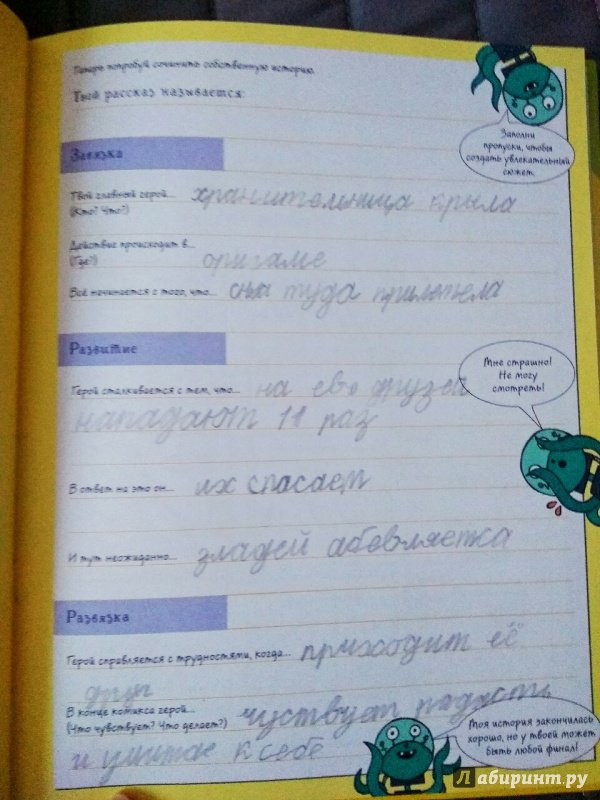 Теперь попробуй сочинить собственную историю.
Твой рассказ называется:
Заполни
пропуски, чтобы
создать увлекательный
сюжет.
Завязка
Твой главный герой... хранительница крыла
(Кто? Что?)
Действие происходит в...
(Где?) оригаме
Всё начинается с того, что... она туда прилетела
Развитие
Мне страшно!
Не могу
смотреть!
Герой сталкивается с тем, что... на его друзей
нападают 11 раз
В ответ на это он... их спасает
И тут неожиданно... зладей абовляетса
Развязка
Герой справляется с трудностями, когда... приходит её
друг
В конце комикса герой...
(Что чувствует? Что делает?) чуствует радость
и к себе
Моя история закончилась
хорошо, но у твоей может
быть любой финал!
Лабиринт.ру